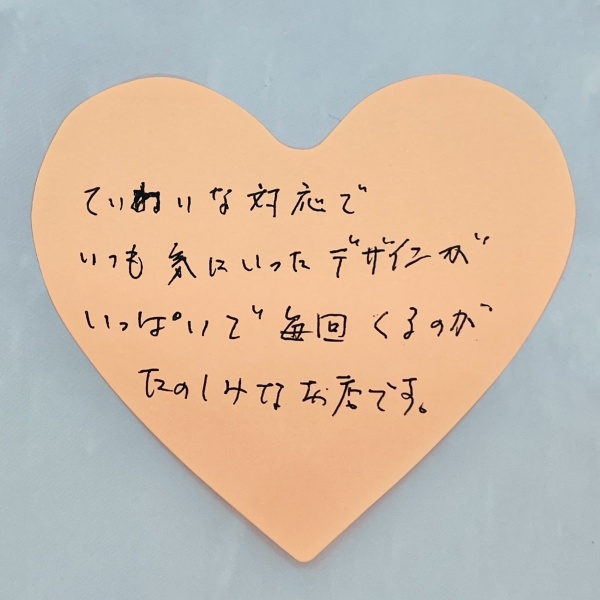 ていねいな対応で
いつも気にいったデザインが
いっぱいで毎回くるのが
たのしみなお店です。